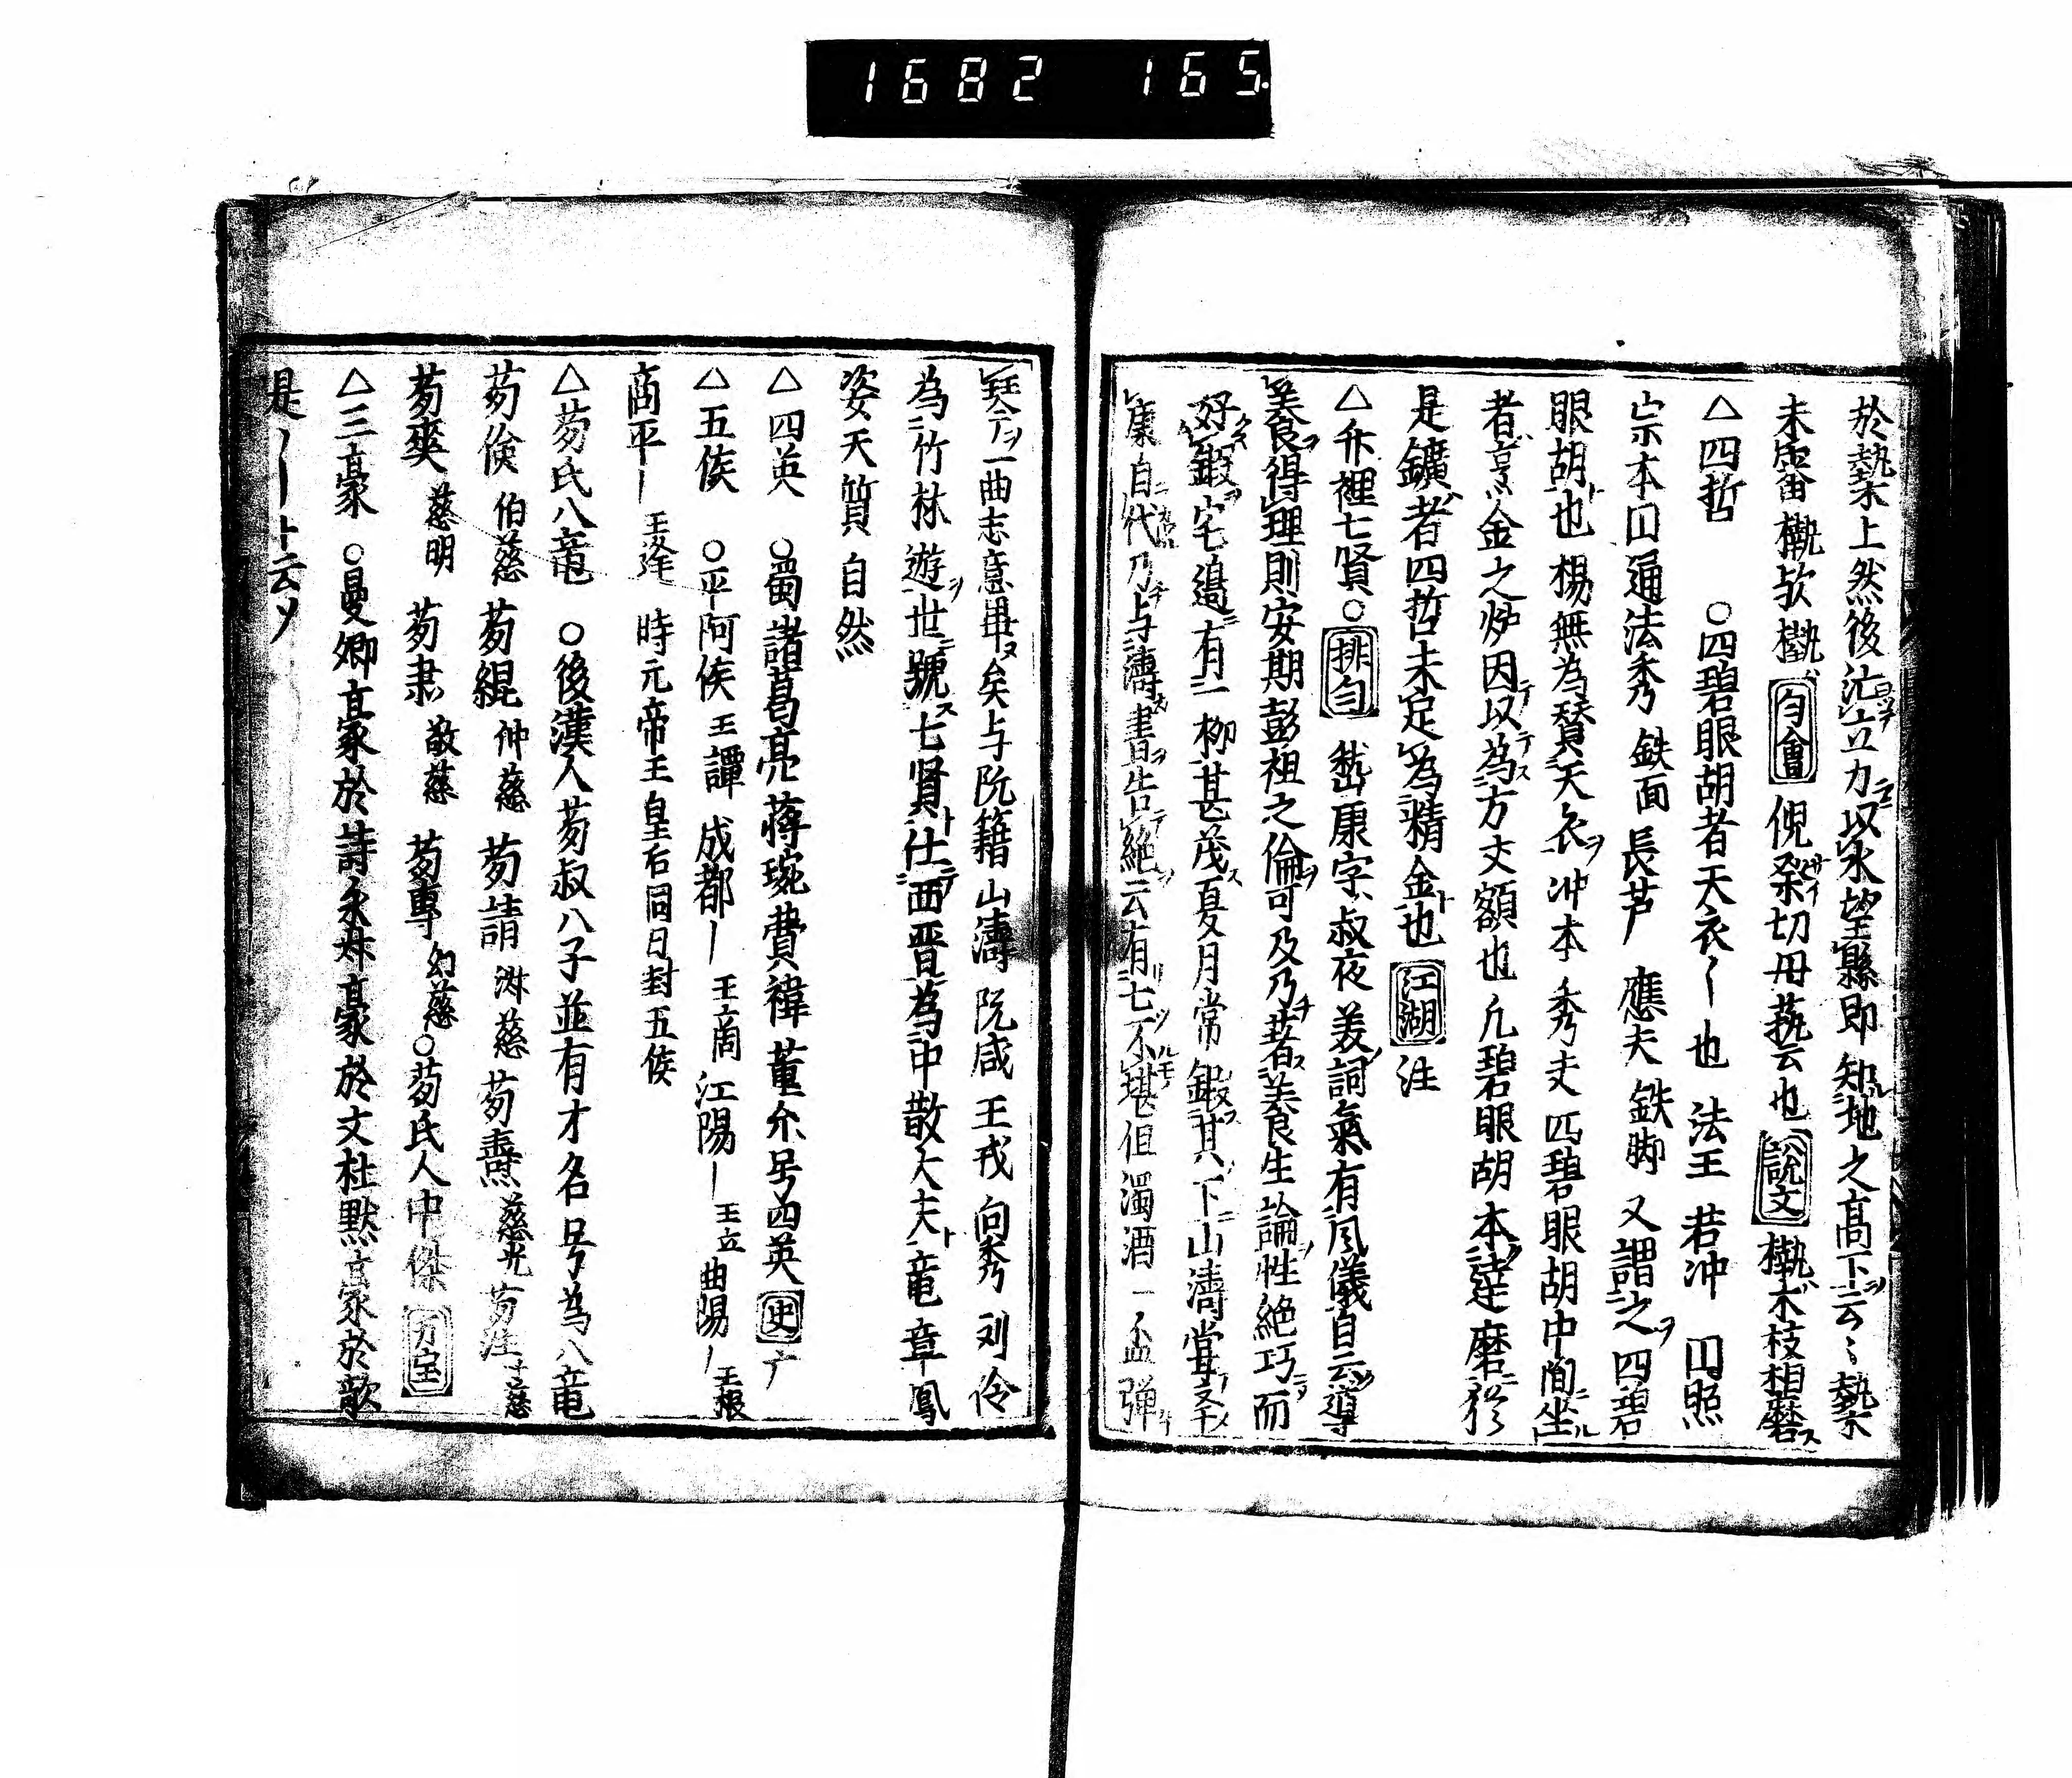 1682 165.
於槷上然後訖立力以水望縣即知地之高下云々槷
未審槸欤槸韵會倪祭切毋蓺云也說文槸木枝相磨
△四哲 ○四碧眼胡者天衣〻也 法王 若冲 円照
宗本円通法秀 鉄面 長芦 應夫 鉄脚 又謂之四碧
眼胡也 楊無為賛天衣冲本秀夫四碧眼胡中間坐
者 金之炉因以為方丈額也 凡碧眼胡本達磨
是鑛者四哲未足為精金也 江湖注
△竹裡七賢○排匀 嵆康字叔夜 美詞氣有風儀自云導
美食得理則安期彭祖之倫可及乃著養生論性絶巧而
好鍛宅邉有一栁甚茂夏月常鍛其下山濤
康自代乃与濤書告絶云有七不堪但濁酒一盃弹
琴一曲志意畢矣与阮籍 山濤 阮咸 王戎 向秀 刘伶
為竹林遊世號七賢仕西晋為中散大夫 竜章鳳
姿天質自然
△四英 ○蜀諸葛亮蒋琬費禕董允号四英史
△五侯 ○平阿侯 王譚 成都〡 王商 江陽〡 王立 曲陽〡 王根
商平〡 王逢 時元帝王皇右同日封五侯
△荀氏八竜 ○後漢人荀叔八子並有才名号為八竜
荀倹 伯慈 荀緄 仲慈 荀靖 淑慈 荀燾 慈光 荀汪
荀爽 慈明 荀肅 敬慈 荀専 幻慈○荀氏人中傑
△三豪 ○曼卿豪於詩永叔豪於文杜黙豪於歌
是